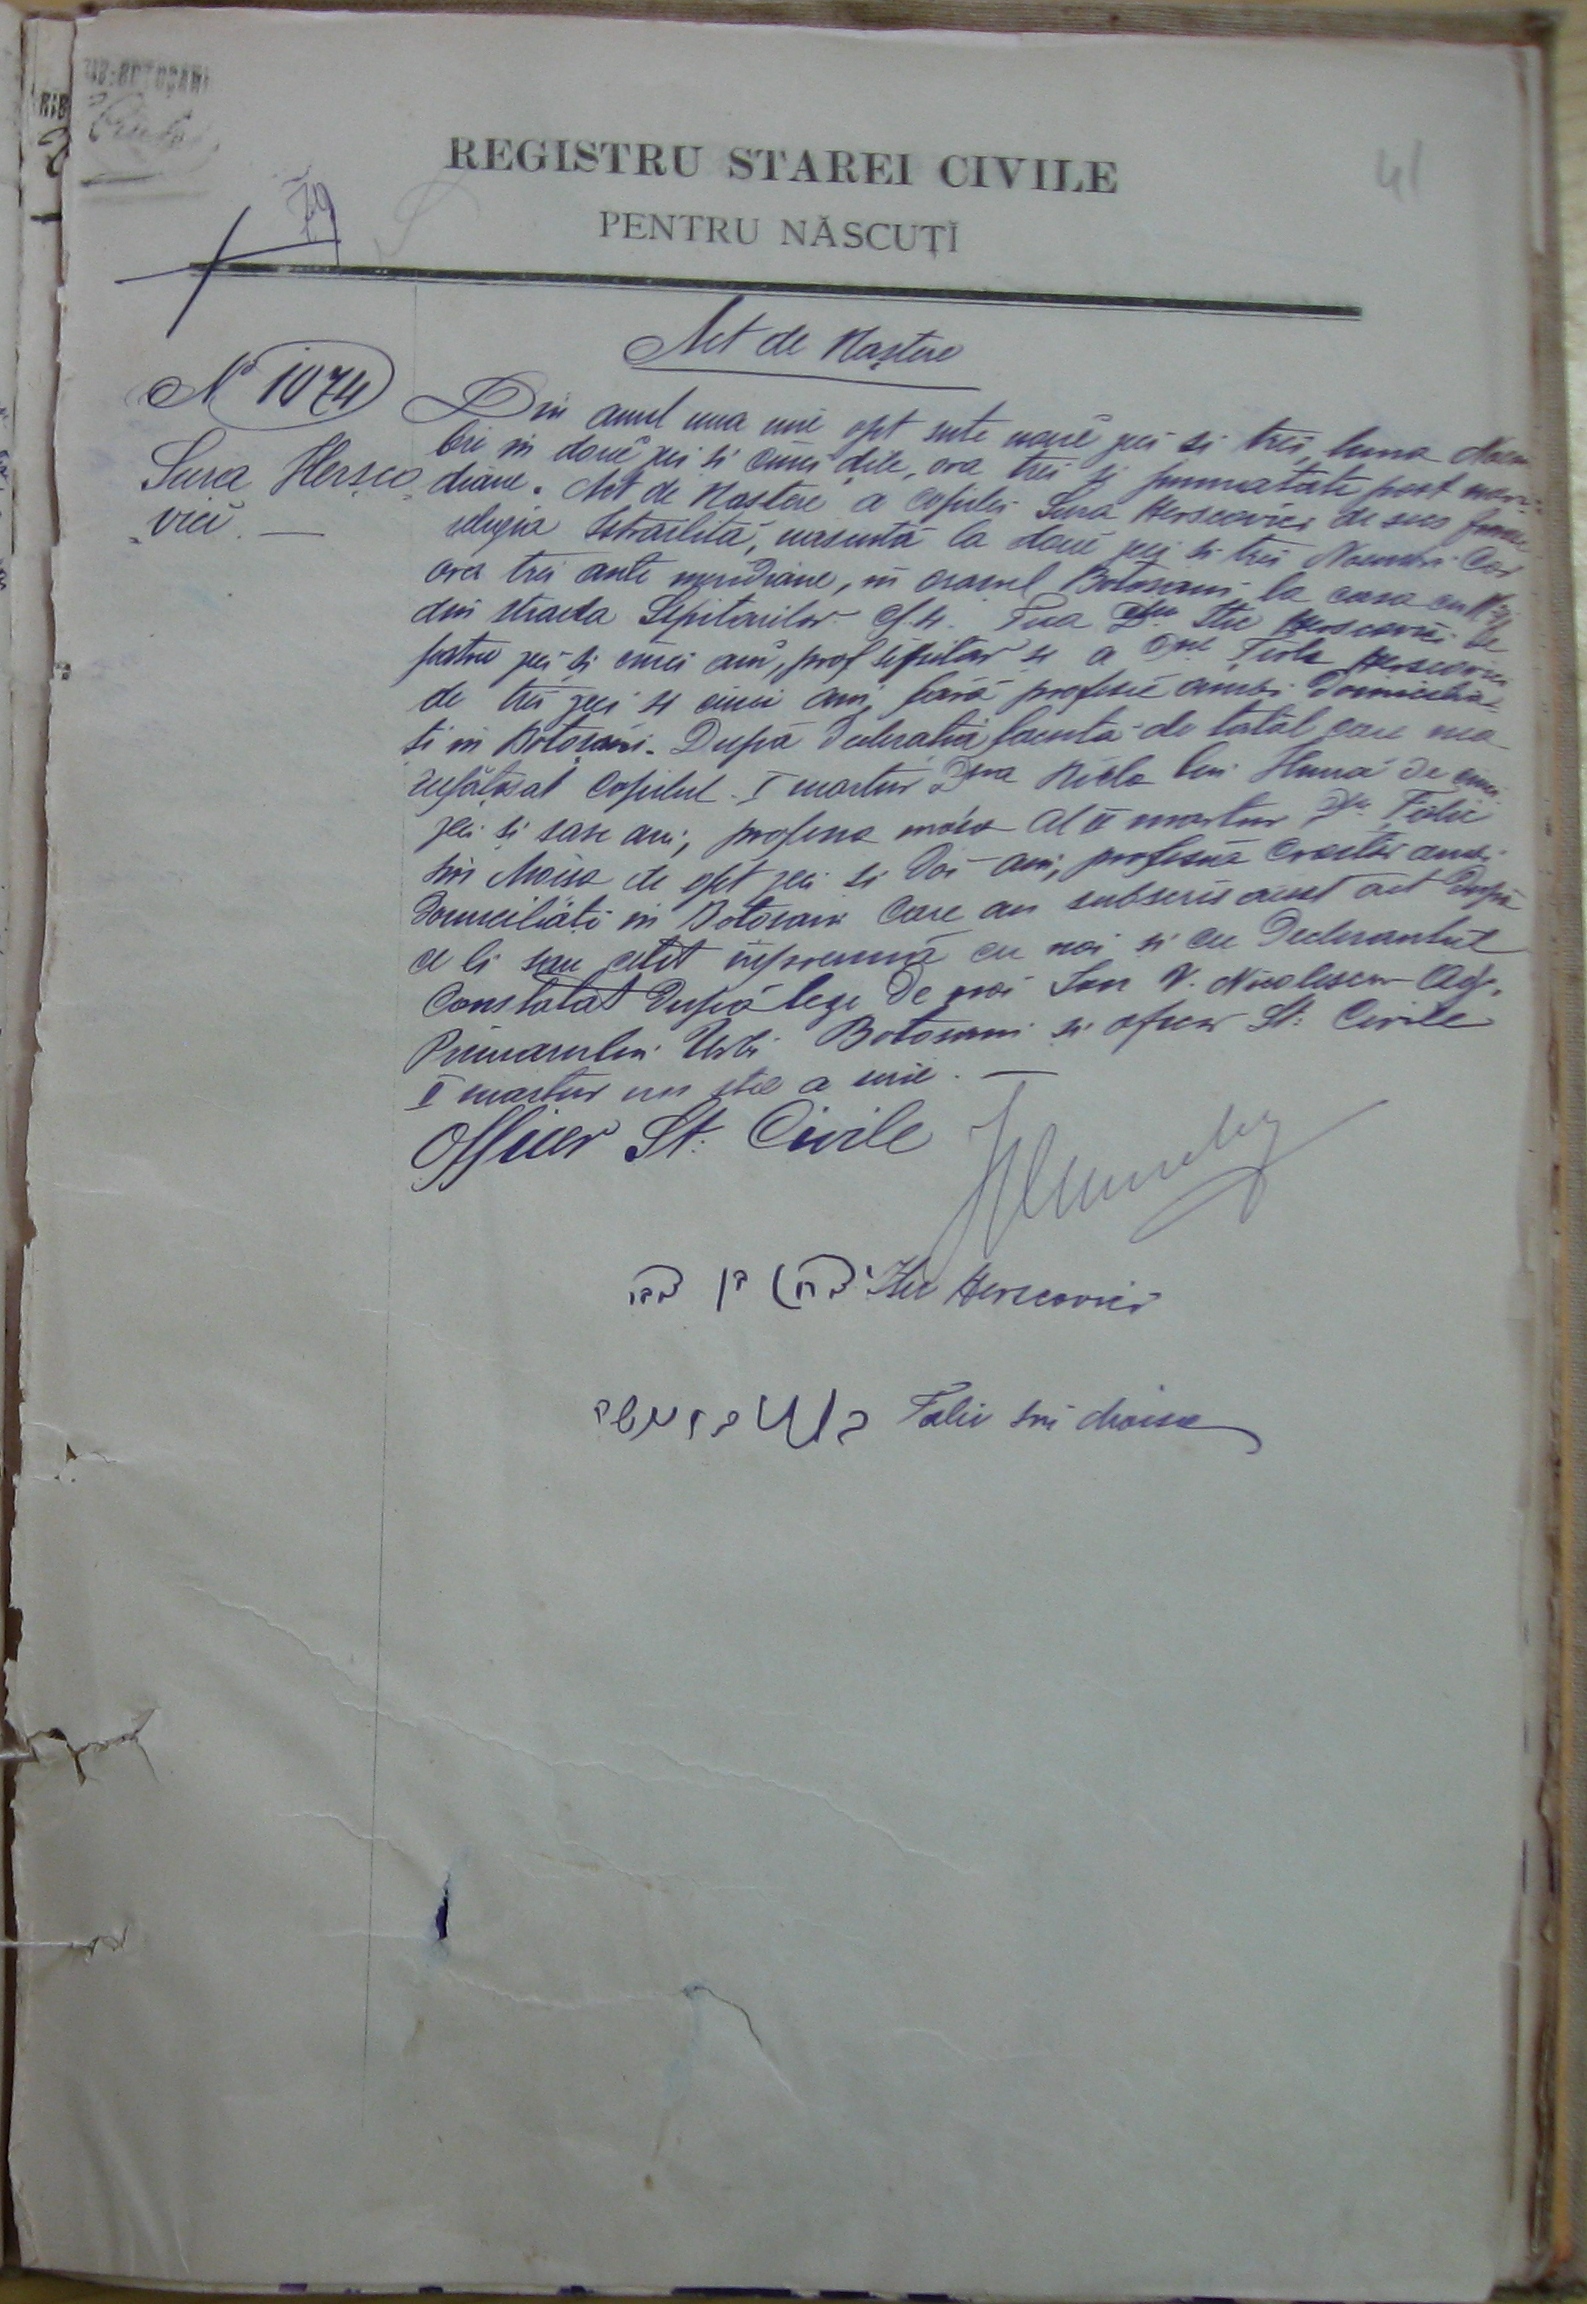 TRIB. BOTOȘANI
41
REGISTRU STAREI CIVILE
PENTRU NĂSCUȚĬ
79
Act de Naștere
No 1074
Sura Hersco-
vici. —
Din anul una mie opt sute nouă zeci si trei, luna Noem
brie in două zeci si cinci dile, ora trei si jumatate post meri-
diane. Act de Nastere a copilei Sura Herscovici de sex femee
religia Israilită, nascută la două zeci si trei Noembri cor
ora trei ante meridiane, in orasul Botosani la casa cu No
din strada fiica Dlui Itic Herscovici de
patru zeci si cinci ani, prof si a Dnei Herscovici
de trei zeci si cinci ani, fară profesie ambi Domicilia-
ți in Botoșani. După declaratia facuta de tatal care nea
infățișat copilul. I martur Dna lui Hună de cinci
zeci și sase ani, profesia moșa al II martur Dlu Falic
sin Moisa de opt zeci si doi ani, profesia ambi
Domiciliăți in Botosani care au subscris acest act După
ce li sau cetit impreună cu noi si cu Declarantul
Constatat După lege de noi Ion V. Nicolescu Adj.
Primarului Urbi Botosani si ofițer St: Civile
II martur nu știe a scrie. —
Officer St: Civile
יצחק בן צבי Itic Herscovici
Falic sin Moisa